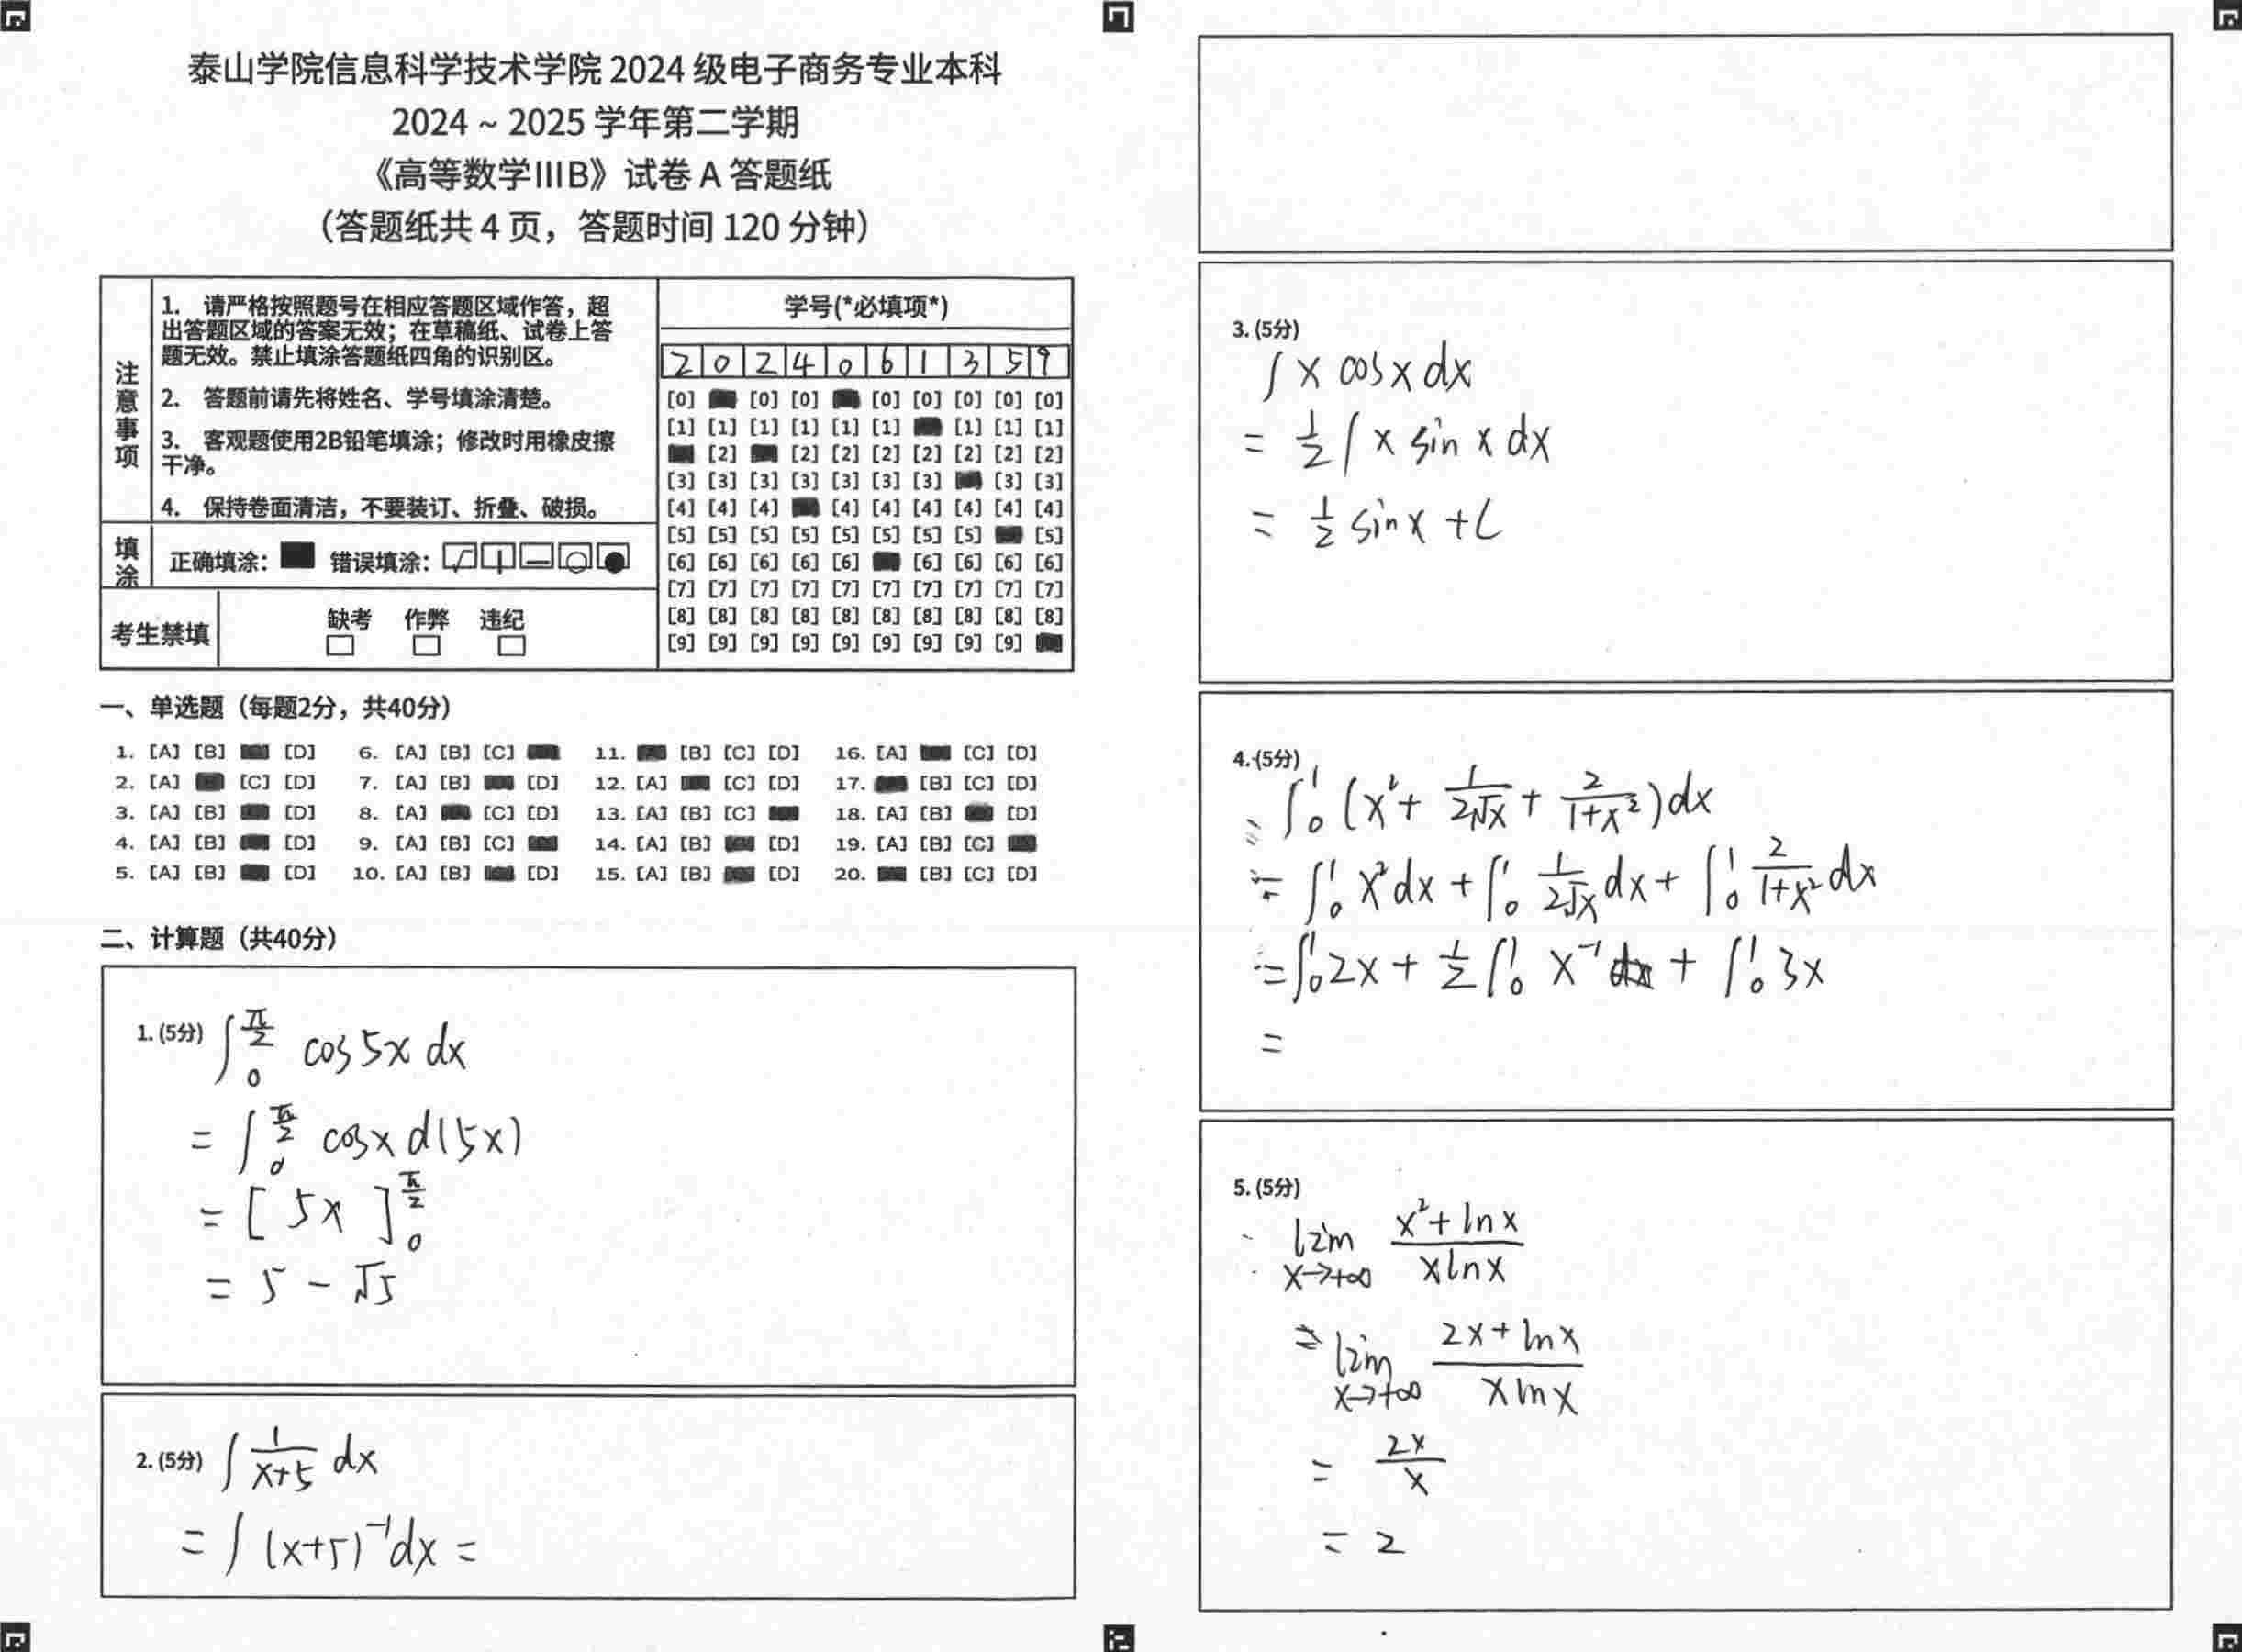 泰山学院信息科学技术学院 2024 级电子商务专业本科
2024 ~ 2025 学年第二学期
《高等数学ⅢB》试卷 A 答题纸
（答题纸共 4 页，答题时间 120 分钟）
注意事项
1. 请严格按照题号在相应答题区域作答，超
出答题区域的答案无效；在草稿纸、试卷上答
题无效。禁止填涂答题纸四角的识别区。
2. 答题前请先将姓名、学号填涂清楚。
3. 客观题使用2B铅笔填涂；修改时用橡皮擦
干净。
4. 保持卷面清洁，不要装订、折叠、破损。
填涂
正确填涂： 错误填涂：
考生禁填
缺考 作弊 违纪
学号(*必填项*)
2 0 2 4 0 6 1 3 5 9
[0] [0] [0] [0] [0] [0] [0] [0]
[1] [1] [1] [1] [1] [1] [1] [1] [1]
[2] [2] [2] [2] [2] [2] [2] [2]
[3] [3] [3] [3] [3] [3] [3] [3] [3]
[4] [4] [4] [4] [4] [4] [4] [4] [4]
[5] [5] [5] [5] [5] [5] [5] [5] [5]
[6] [6] [6] [6] [6] [6] [6] [6] [6]
[7] [7] [7] [7] [7] [7] [7] [7] [7] [7]
[8] [8] [8] [8] [8] [8] [8] [8] [8] [8]
[9] [9] [9] [9] [9] [9] [9] [9] [9]
一、单选题（每题2分，共40分）
1. [A] [B] [D] 6. [A] [B] [C] 11. [B] [C] [D] 16. [A] [C] [D]
2. [A] [C] [D] 7. [A] [B] [D] 12. [A] [C] [D] 17. [B] [C] [D]
3. [A] [B] [D] 8. [A] [C] [D] 13. [A] [B] [C] 18. [A] [B] [D]
4. [A] [B] [D] 9. [A] [B] [C] 14. [A] [B] [D] 19. [A] [B] [C]
5. [A] [B] [D] 10. [A] [B] [D] 15. [A] [B] [D] 20. [B] [C] [D]
二、计算题（共40分）
1. (5分) ∫₀^(π/2) cos 5x dx
= ∫₀^(π/2) cosx d(5x)
= [ 5x ]₀^(π/2)
= 5 - √5
2. (5分) ∫ 1/(x+5) dx
= ∫ (x+5)⁻¹dx =
3. (5分)
∫ x cosx dx
= 1/2 ∫ x sin x dx
= 1/2 sinx + C
4. (5分)
∫₀¹ (x² + 1/(2√x) + 2/(1+x²)) dx
= ∫₀¹ x² dx + ∫₀¹ 1/(2√x) dx + ∫₀¹ 2/(1+x²) dx
= ∫₀¹ 2x + 1/2 ∫₀¹ x⁻¹ dx + ∫₀¹ 3x
=
5. (5分)
lim x→+∞ (x² + ln x)/(x ln x)
= lim x→+∞ (2x + ln x)/(x ln x)
= 2x/x
= 2